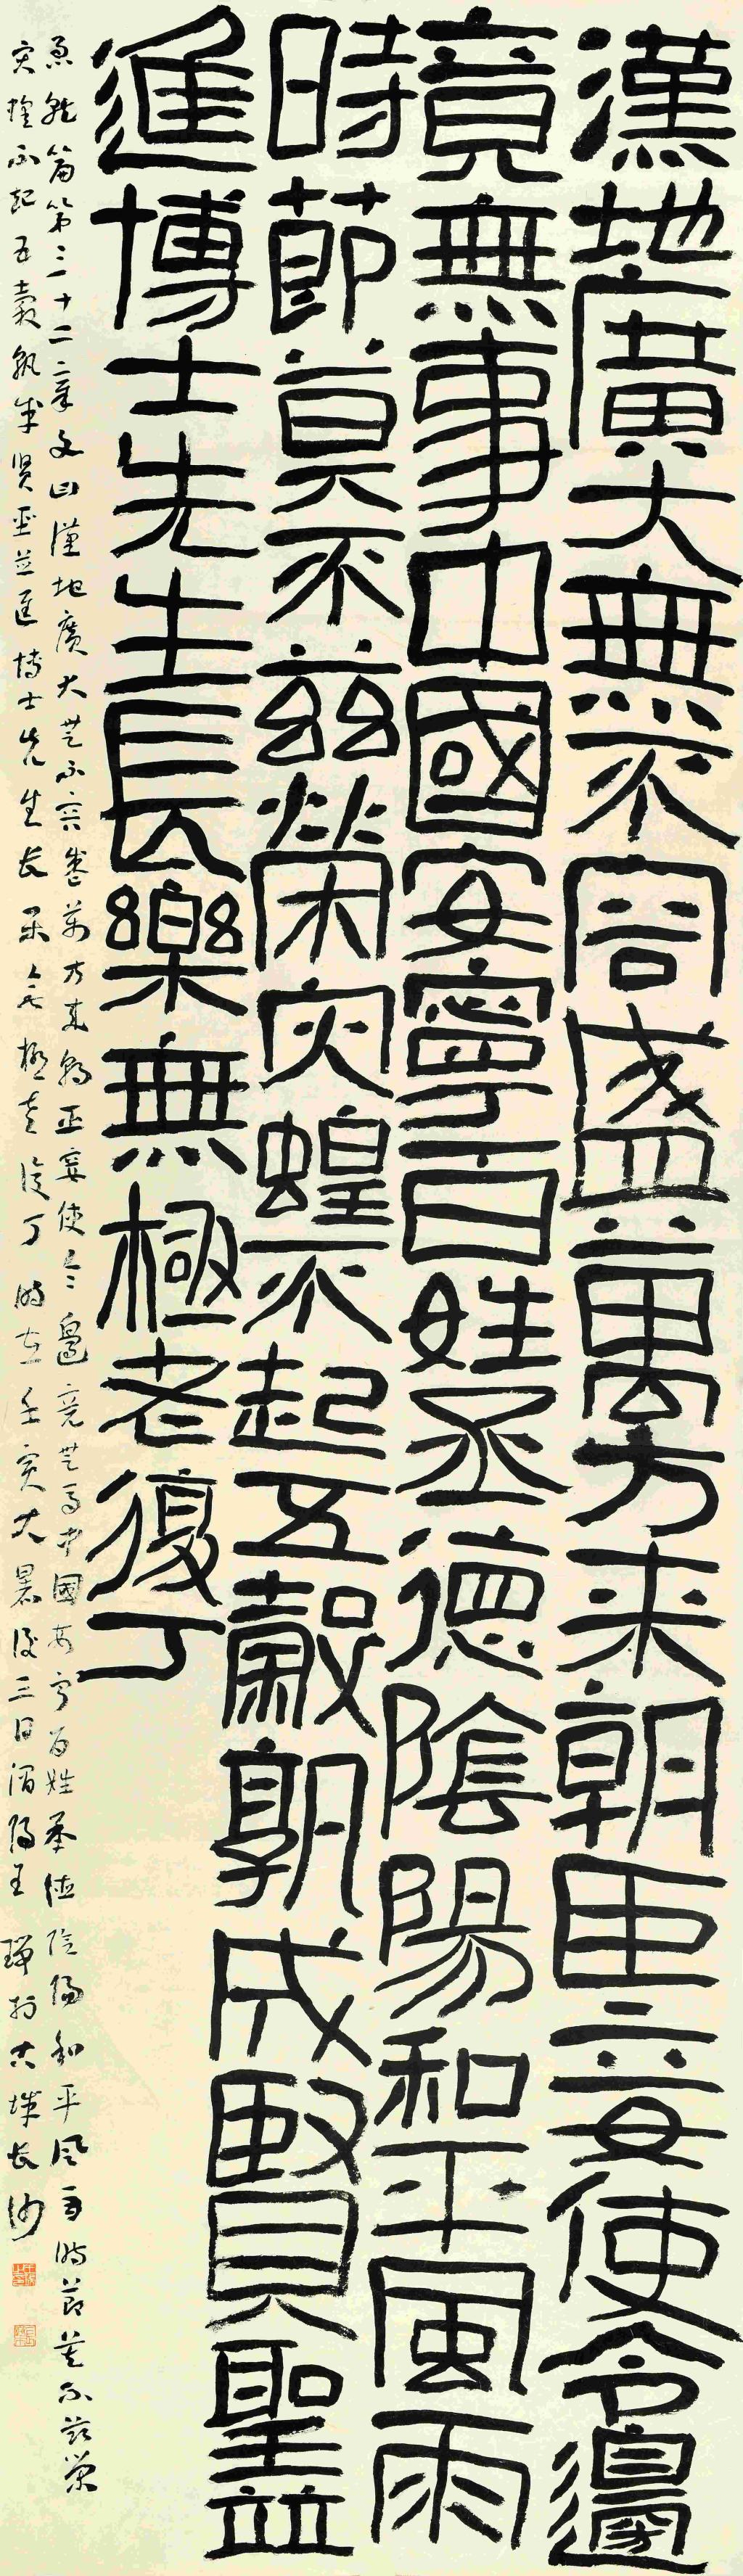 漢地廣大無不容盛萬方来朝臣妾使令邊
竟無事中國安寧百姓丞德陰陽和平風雨
時節莫不玆榮灾蝗不起五穀孰成賢聖並
進博士先生長樂無極老復丁
急就篇第三十二章文曰漢地廣大無不容盛萬方来朝臣妾使令邊竟無事中國安寧百姓承德陰陽和平風雨時節莫不玆榮
灾蝗不起五穀孰成賢聖並進博士先生長樂無極老復丁時在壬寅大暑後三日渭陽王